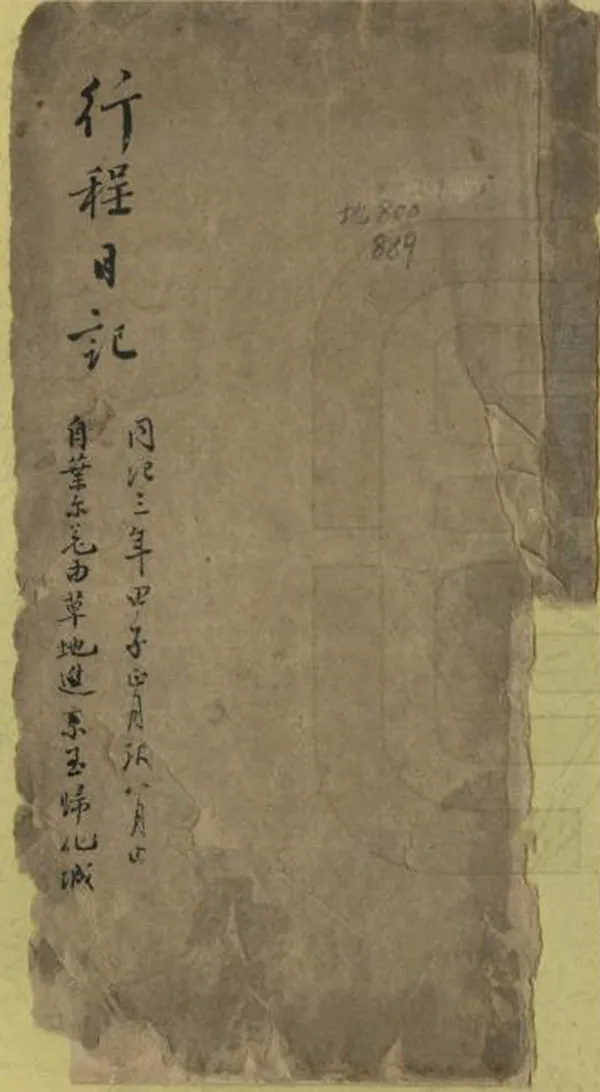 行程日記
同治三年甲子正月起八月止
自葉尔羌由草地進京至歸化城
地800
889